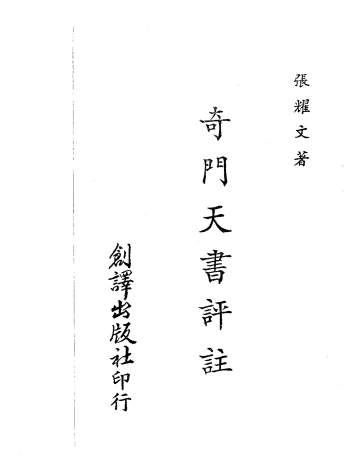 張耀文著
奇門天書評註
創譯出版社印行